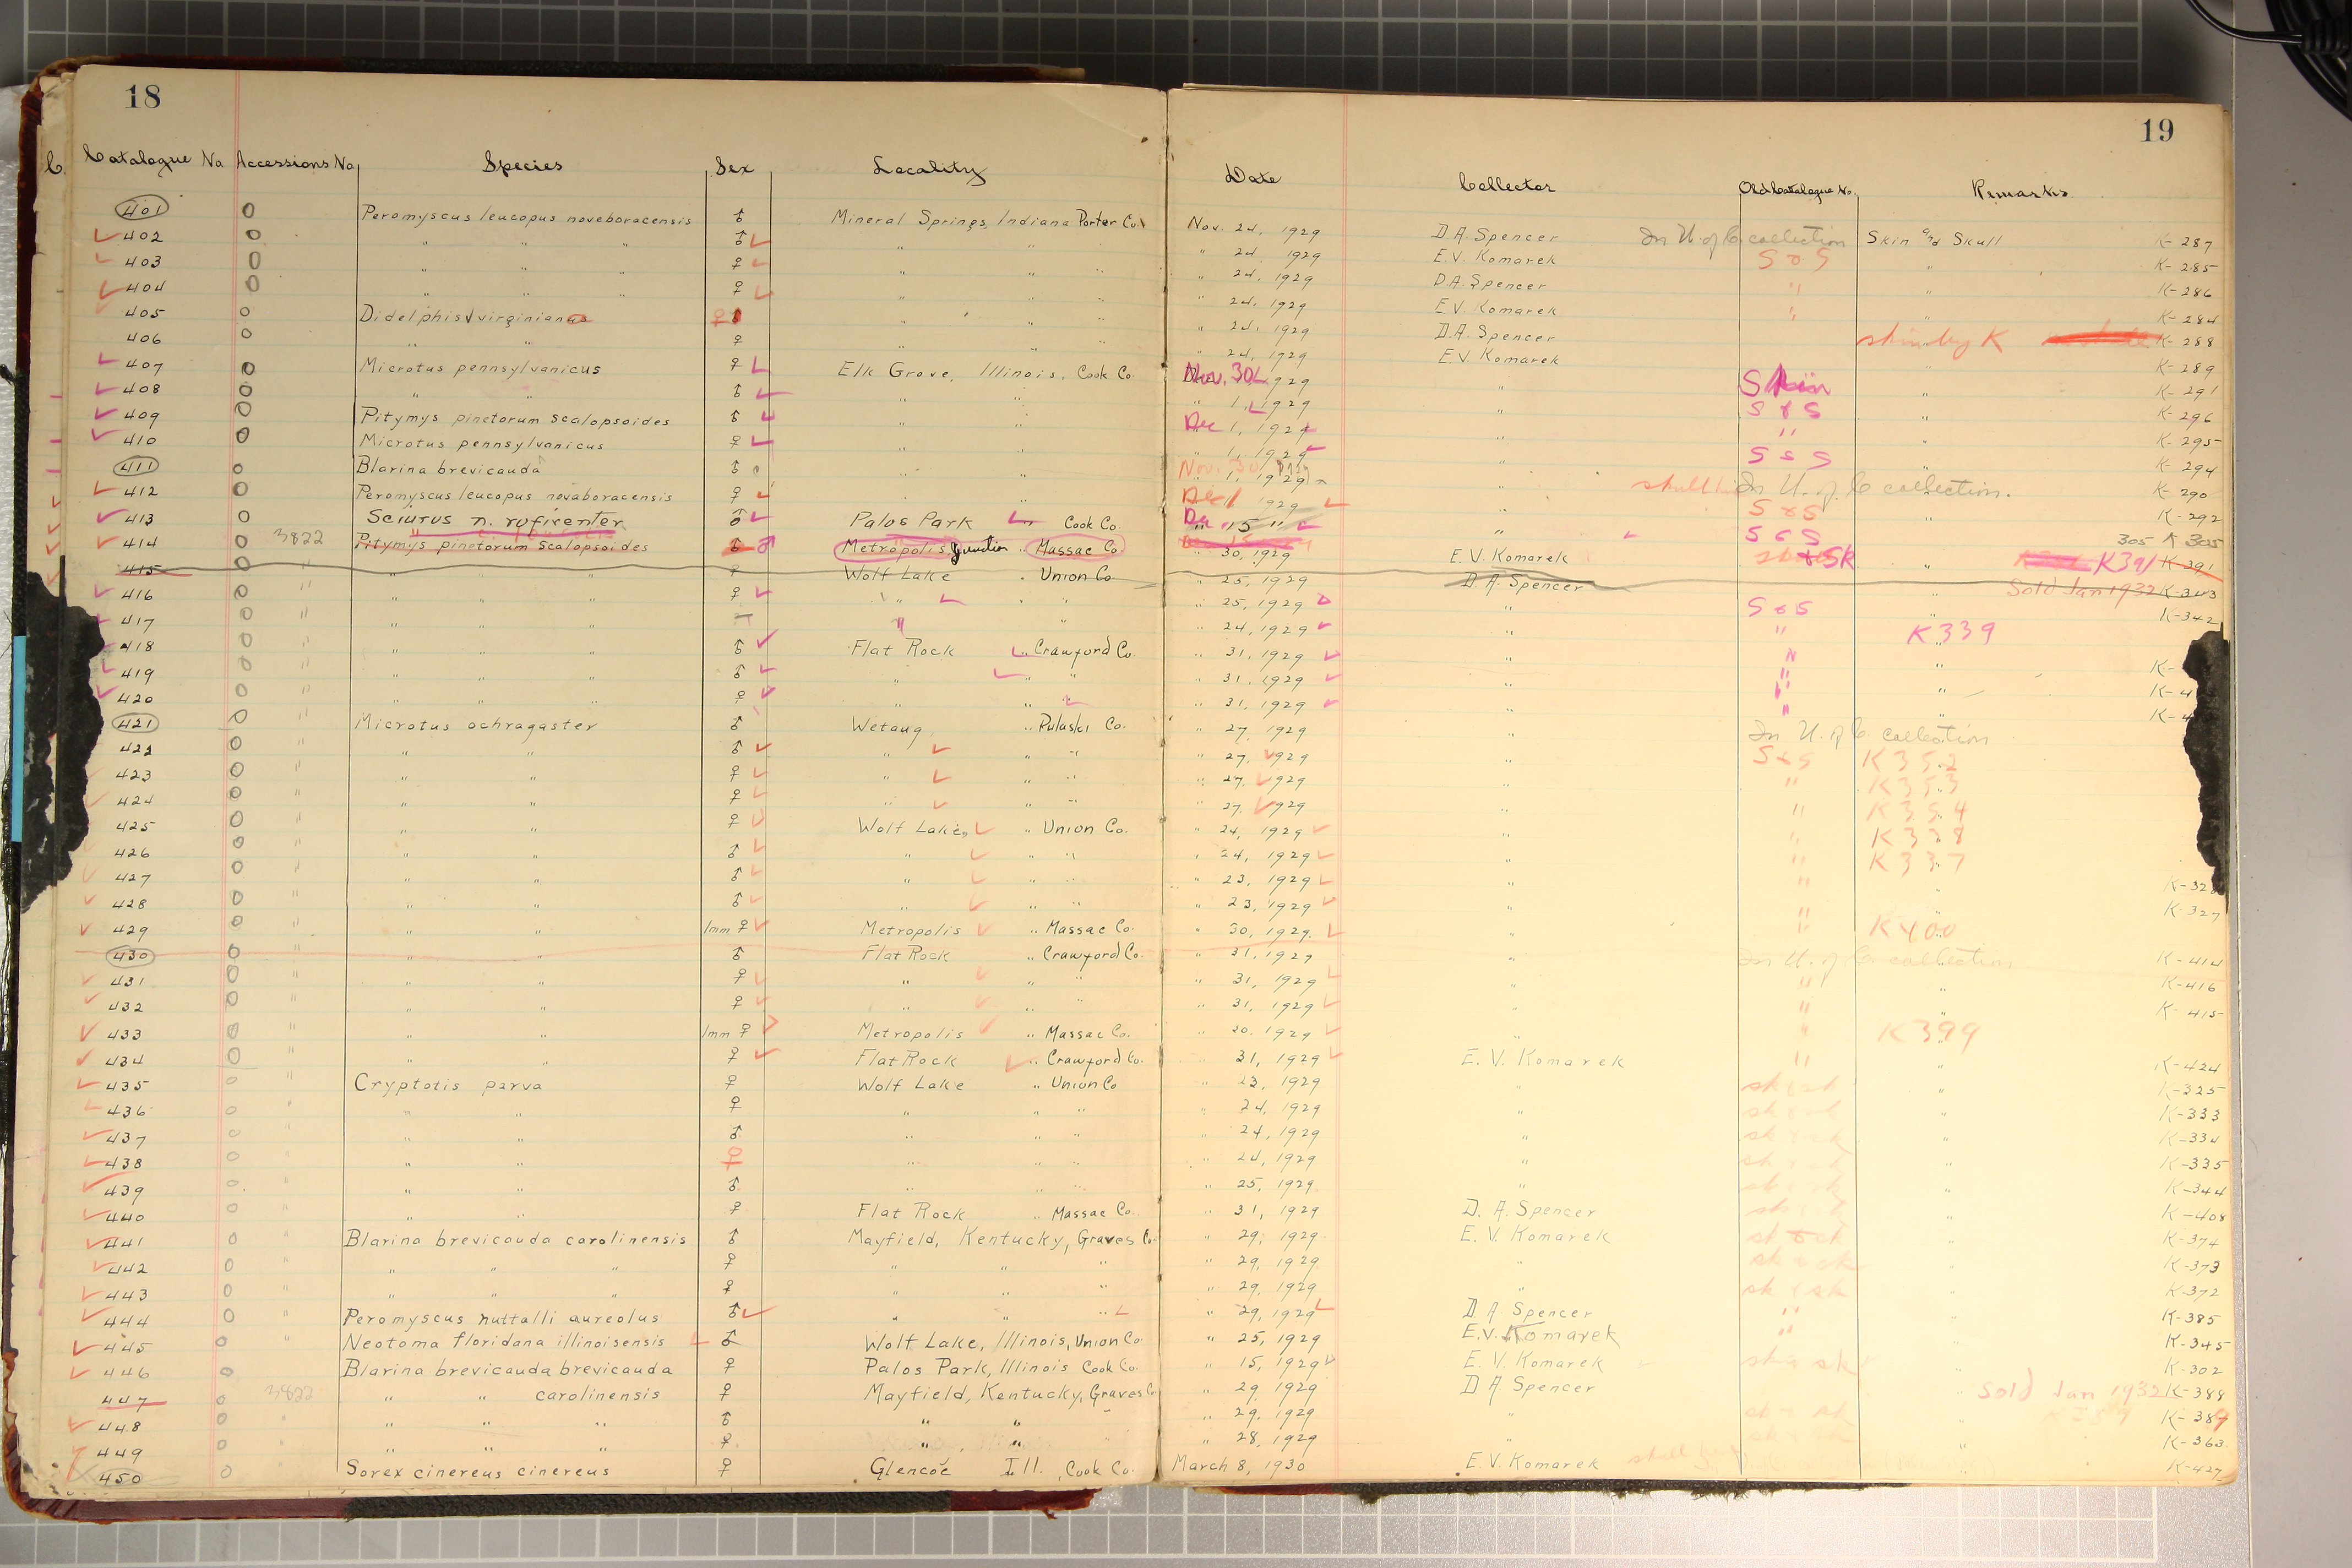 18
19
Catalogue No Accessions No Species Sex Locality Date Collector Old Catalogue No. Remarks
401 0 Peromyscus leucopus noveboracensis ♂ Mineral Springs, Indiana Porter Co. Nov. 24, 1929 D.A. Spencer In U. of C. collection Skin and Skull K-287
402 0 " " " ♂ " " " " 24 1929 E.V. Komarek S & S " K-285
403 0 " " " ♀ " " " " 24, 1929 D.A. Spencer " " K-286
404 0 " " " ♀ " " " " 24, 1929 E.V. Komarek " K-284
405 0 Didelphis virginiana ♀ " " " " 24, 1929 D.A. Spencer K-288
406 0 " " ♀ " " " " 24, 1929 E.V. Komarek K-289
407 0 Microtus pennsylvanicus ♀ Elk Grove, Illinois, Cook Co. Nov. 30 1929 " Skin " K-291
408 0 " " ♂ " " " 1, 1929 " S & S " K-296
409 0 Pitymys pinetorum scalopsoides ♂ " " Dec 1, 1929 " " " K-295
410 0 Microtus pennsylvanicus ♀ " " " 1, 1929 " S & S " K-294
411 0 Blarina brevicauda ♂ " " Nov. 30 1, 1929 " In U. of C. collection. K-290
412 0 Peromyscus leucopus novaboracensis ♀ " " Dec 1 1929 " S & S " K-292
413 0 Sciurus n. rufiventer ♂ Palos Park " Cook Co. Dec. 15 " " S & S 305 K 305
414 0 3822 Pitymys pinetorum scalopsoides ♂ Metropolis Junction " Massac Co. " 30, 1929 E.V. Komarek & Sk " K391 K-391
415 " " " ♀ Wolf Lake " Union Co " 25, 1929 D.A. Spencer Sold Jan 1932 K-343
416 0 " " " " ♀ " " " " 25, 1929 " S & S K-342
417 0 " " " " " " " 24, 1929 " " K339
418 0 " " " " ♂ Flat Rock " Crawford Co. " 31, 1929 " " " K-
419 0 " " " " ♂ " " " " 31, 1929 " " " K-4
420 0 " " " " ♀ " " " " 31, 1929 " " " K-4
421 0 " Microtus ochragaster ♂ Wetaug, " Pulaski Co. " 27, 1929 " In U. of C. collection
422 0 " " " ♂ " " " " 27, 1929 " S & S K352
423 0 " " " ♀ " " " " 27, 1929 " " K353
424 0 " " " ♀ " " " " 27, 1929 " " K354
425 0 " " " ♀ Wolf Lake, " Union Co. " 24, 1929 " " K338
426 0 " " " ♂ " " " " 24, 1929 " " K337
427 0 " " " ♂ " " " " 23, 1929 " " " K-32
428 0 " " " ♂ " " " " 23, 1929 " K-327
429 0 " " " Imm ♀ Metropolis " Massac Co. " 30, 1929. " " K400
430 0 " " " ♂ Flat Rock " Crawford Co. " 31, 1929 " In U. of C. collection K-414
431 0 " " " ♀ " " " " 31, 1929 " " " K-416
432 0 " " " ♀ " " " " 31, 1929 " " " K-415
433 0 " " " Imm ♀ Metropolis " Massac Co. " 30, 1929 " " K399
434 0 " " " ♀ Flat Rock " Crawford Co. " 31, 1929 E. V. Komarek " " K-424
435 0 " Cryptotis parva ♀ Wolf Lake " Union Co " 23, 1929 " sk & sk " K-325
436 0 " " " ♀ " " " " 24, 1929 " sk & sk K-333
437 0 " " " ♂ " " " " 24, 1929 " sk & sk " K-334
438 0 " " " ♀ " " " " 24, 1929 " sk & sk " K-335
439 0 " " " ♂ " " " " 25, 1929. " sk & sk " K-344
440 0 " " " ♀ Flat Rock " Massac Co. " 31, 1929 D. A. Spencer sk & sk " K-408
441 0 " Blarina brevicauda carolinensis ♂ Mayfield, Kentucky, Graves Co. " 29, 1929 E. V. Komarek sk & sk " K-374
442 0 " " " " ♀ " " " " 29, 1929. " sk & sk " K-373
443 0 " " " " ♀ " " " " 29, 1929 " sk & sk " K-372
444 0 " Peromyscus nuttalli aureolus ♂ " " " " 29, 1929 D. A Spencer " " K-385
445 0 " Neotoma floridana illinoisensis ♂ Wolf Lake, Illinois, Union Co. " 25, 1929 E.V. Komarek " " K-345
446 0 Blarina brevicauda brevicauda ♀ Palos Park, Illinois Cook Co. " 15, 1929 E. V. Komarek sk & sk " K-302
447 0 3822 " " carolinensis ♀ Mayfield, Kentucky, Graves Co " 29, 1929 D A Spencer " Sold Jan 1932 K-388
448 0 " " " " ♂ " " " " 29, 1929 " sk & sk " K-389
449 0 " " " ♀ " " " " 28, 1929 " sk & sk " K-363
450 0 Sorex cinereus cinereus ♀ Glencoe Ill. Cook Co. March 8, 1930 E.V. Komarek skull " K-427